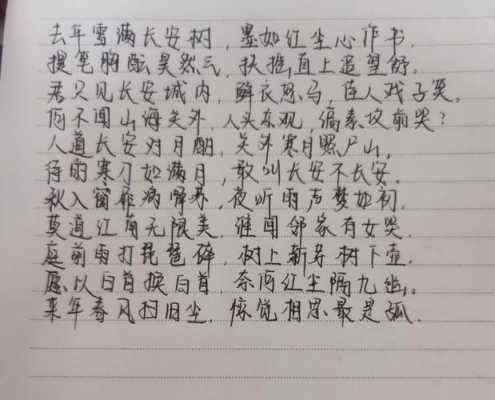 去年雪满长安树，墨如红尘心作书，
提笔胸酝昊然气，扶摇直上追望舒。
君只见长安城内，鲜衣怒马，佳人戏子笑，
何不闻山海关外，人头京观，缟素坟前哭？
人道长安对月酌，关外寒月照尸山，
待雨寒刀如满月，敢叫长安不长安。
秋入窗扉病 苏，夜听雨声梦如初，
莫道江南无限美，谁闻邻家有女哭。
庭前雨打琵琶碎，树上新芽树下壶。
愿以白首换白首，奈何红尘隔九幽。
来年春风扫旧尘，惊觉相思最是孤。